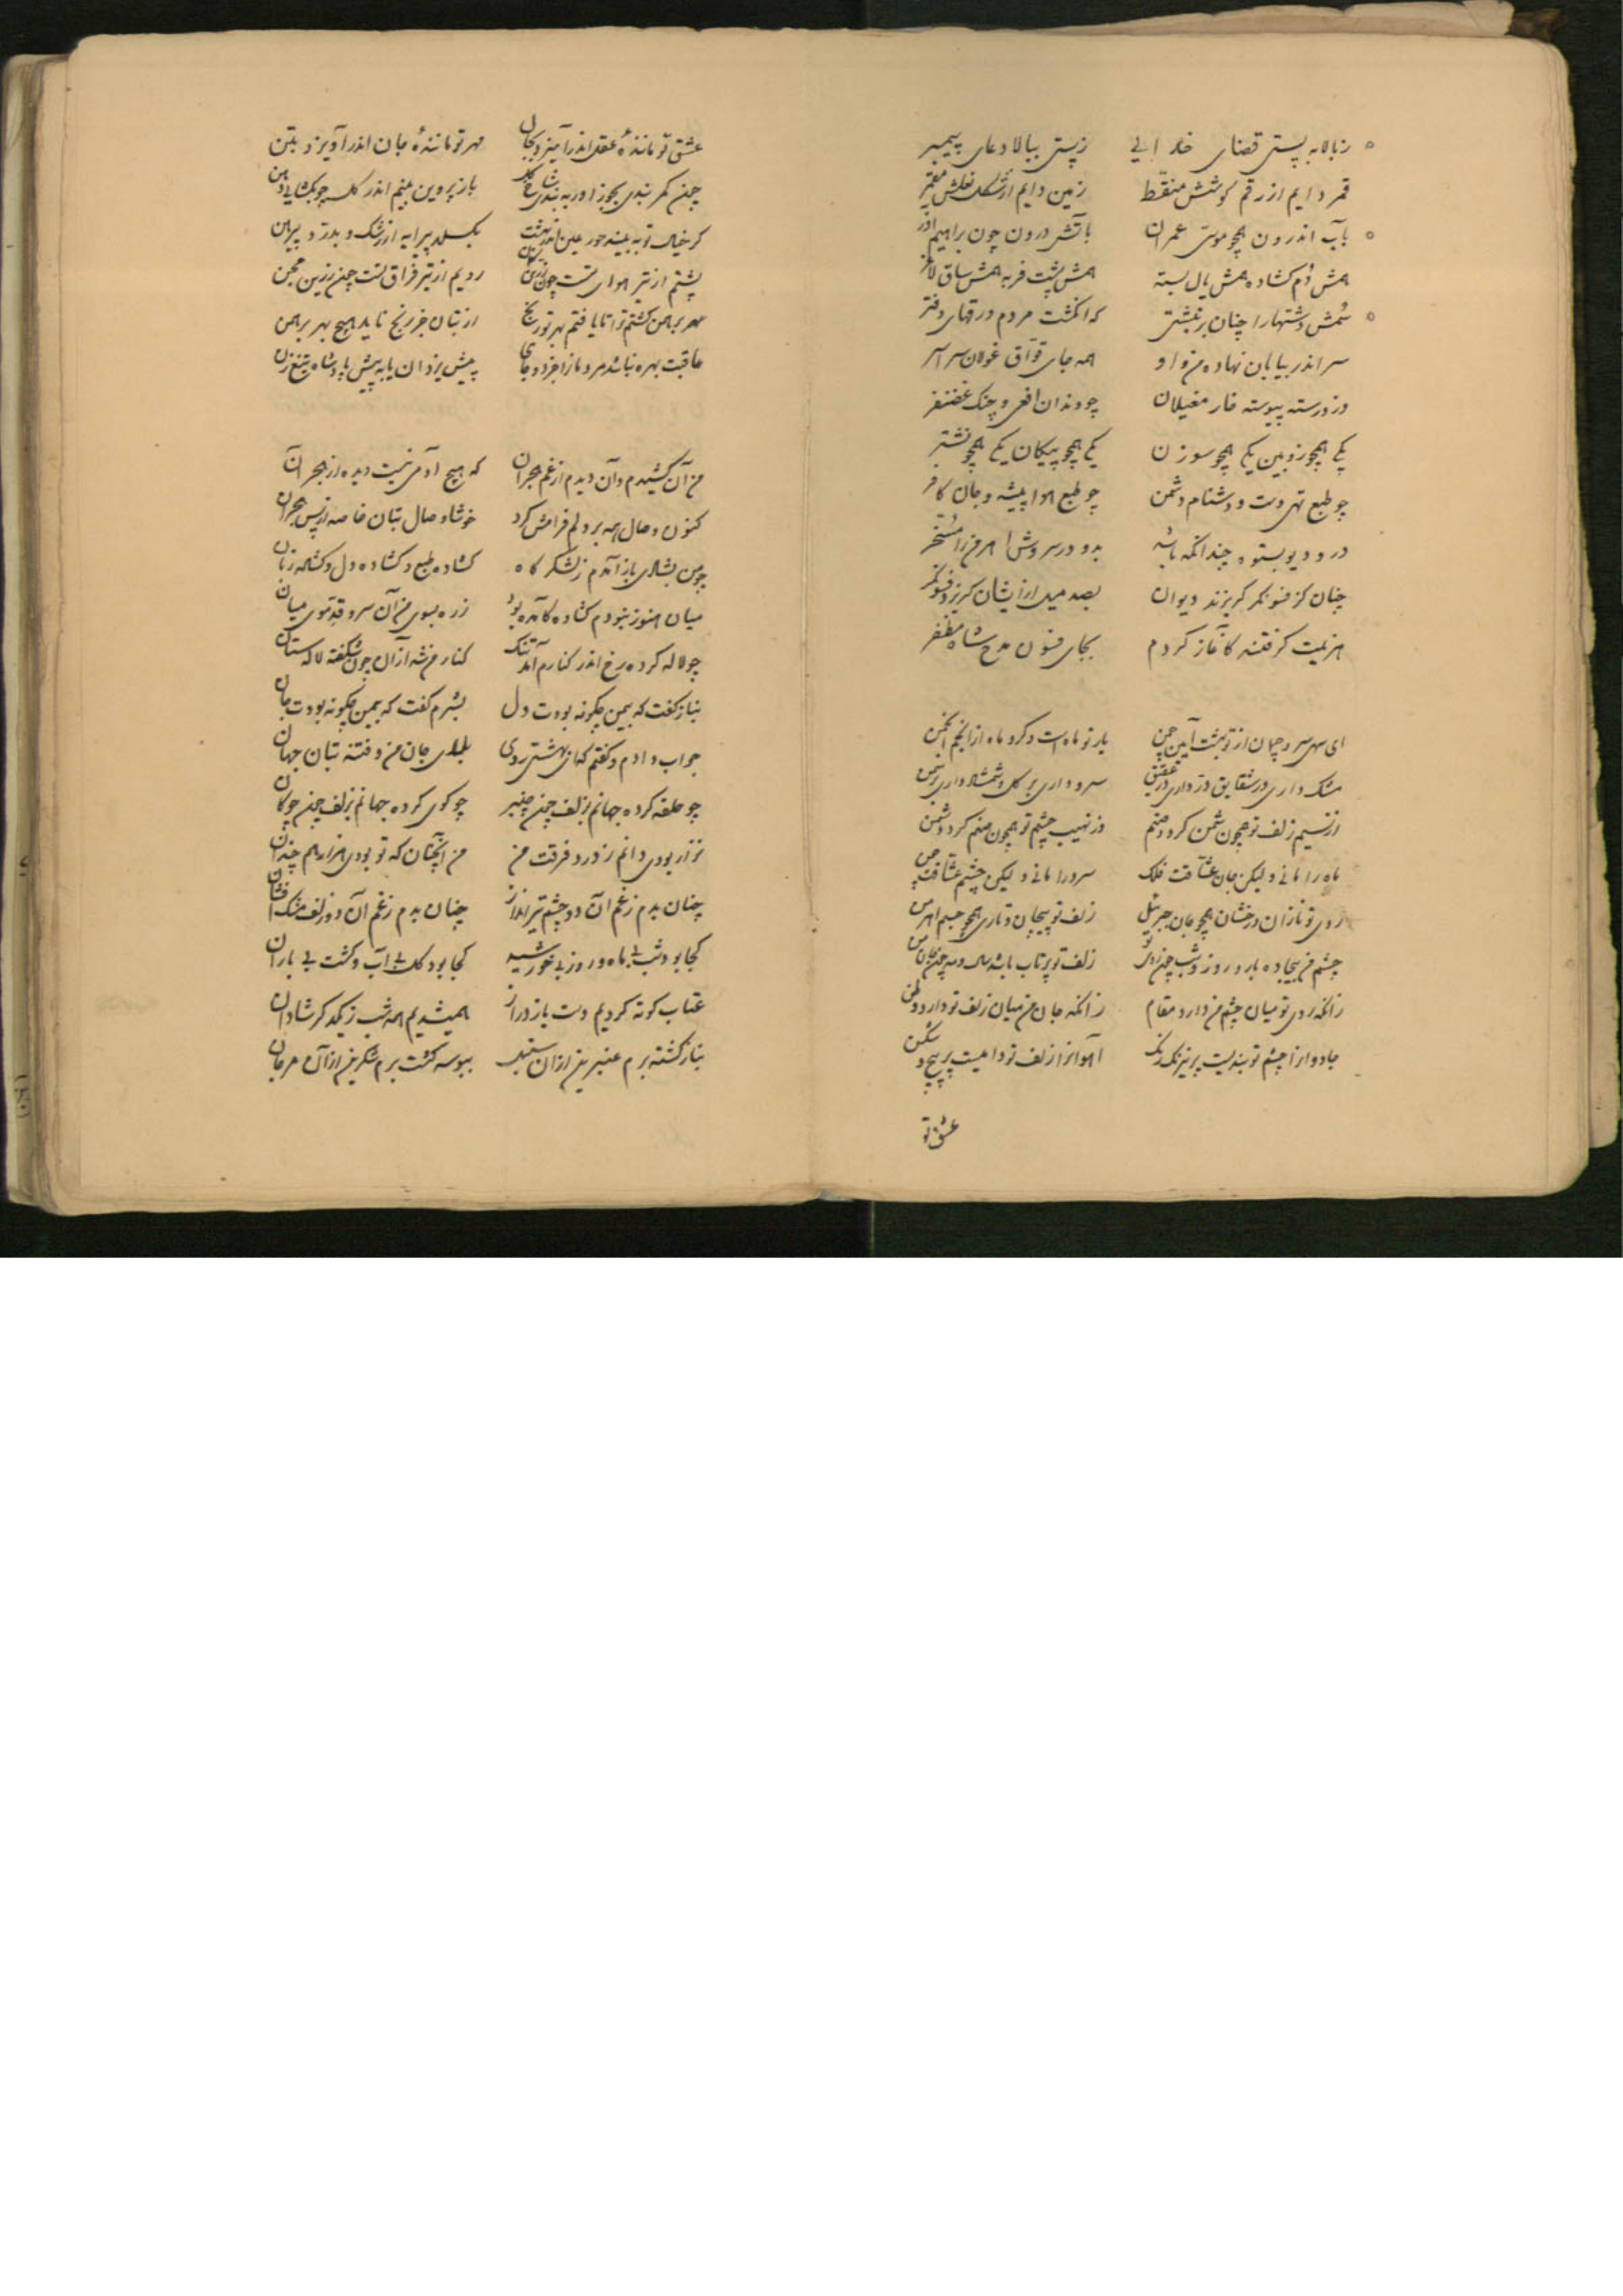 ز بالا به پستی قضای خدایی زپستی ببالا دعای پیمبر
قمر دایم از رقم کوشش منقّط زمین دایم از شکل نعلش مقمّر
بآب اندرون همچو موسیّ عمران بآتش درون چون براهیم آذر
همش دُم کشاده همش یال بسته همش پشت فربه همش ساق لاغر
سُمش دشتها را چنان بر نبشتی که انکشت مردم ورقهای دفتر
سر اندر بیابان نهاده من و او همه جای غولان سراسر
وزو رسته پیوسته خار مغیلان چو دندان افعی و چنک غضنفر
یکی همچو زوبین یکی همچو سوزن یکی همچو پیکان یکی همچو نشتر
چو طبع تهی دست و دشنام دشمن چو طبع هوا پیشه و جان کافر
درو دیو بستوه چندانکه باشد بدو در سروش مر من را مسخّر
چنان کز فسونکر کریزند دیوان بصد میل از ایشان کریزد فسونکر
هزیمت کرفتند کاغاز کردم بجای فسون مدح شاه مظفر
ای سهی سرو چمان از تو بهشت آیین چمن یار تو ماه است و کرد ماه از انجم انجمن
مشک داری در شقایق درّ داری در عقیق سرو داری بر کل و شمشاد داری بر سمن
از نسیم زلف تو همچون شمن کردد صنم وز نهیب چشم تو همچون صنم کردد شمن
ماه را مانی و لیکن جان عشّاقت فلک سرو را مانی و لیکن چشم عشّاقت چمن
روی تو تازان درخشان همچو جان جبرئیل زلف تو پیچان و تاری همچو جسم اهرمن
چشم من بیجاده بارد روز و شب چون زلف تو پرتاب باشد سال و مه چون جان من
زانکه روی تو میان چشم من دارد مقام زانکه جان من میان زلف تو دارد وطن
جادوانرا چشم تو بندیست پر نیرنک و رنک آهوانرا زلف تو دامیست پر پیچ و شکن
عشق تو
عشق تو ماننده عقل اندر آمیزد بجان مهر تو ماننده جان اندر آویزد بتن
چون کمر بندی بجوزا در به بندی شاخ کل باز پروین بینم اندر کل چو بکشایی دهن
کر خیال تو به بیند حور عین اندر بهشت بکسلد پیرایه از رشک و بدرّد پیرهن
پشتم از تیر هوای تست چون زرین کمان رویم از تیر فراق تست چون زرین مجن
مهر برهمن کشتم ترا تا یافتم بهر تو رنج از بتان جز رنج ناید هیچ بهر برهمن
عاقبت بهره نباشد مرد را از خرد و جای پیش یزدان یا به پیش پادشاه تیغ زن
من آن کشیدم و آن دیدم از غم هجران که هیچ آدمی نیست دیده از هجر آن
کنون وصال همه بر دلم فرامش کرد خوشا وصال بتان خاصه از پس هجران
چو من بشادی باز آمدم ز لشکر کاه کشاده طبع و کشاده دل و کشاده زبان
میان هنوز نبودم کشاده کآمده بود زره بسوی من آن سرو قدّ موی میان
چو لاله کرده رخ اندر کنارم آمد تنک کنار من شد از آن چون شکفته لاله ستان
بناز کفت که بیمن چکونه بودت دل بشرم کفت که بیمن چکونه بودت جان
جواب دادم و کفتم که ای بهشتی روی بلای جان من و فتنه بتان جهان
چو حلقه کرده جهانم بزلف چون چنبر چو کوی کرده جهانم بزلف چون چوکان
نزار بودی دانم ز درد فرقت من من آنچنان که تو بودی هزار هم چندان
چنان بدم ز غم آن دو چشم تیر انداز چنان بدم ز غم آن دو زلف مشک افشان
کجا بود شب بی ماه و روز بی خورشید کجا بود کل بی آب و کشت بی باران
عتاب کوته کردیم و دست باز دراز همیشدیم همه شب ز یکدکر شادان
بناز کشته برم عنبرین از آن سنبل ببوسه کشت برم شکرین از آن مرجان